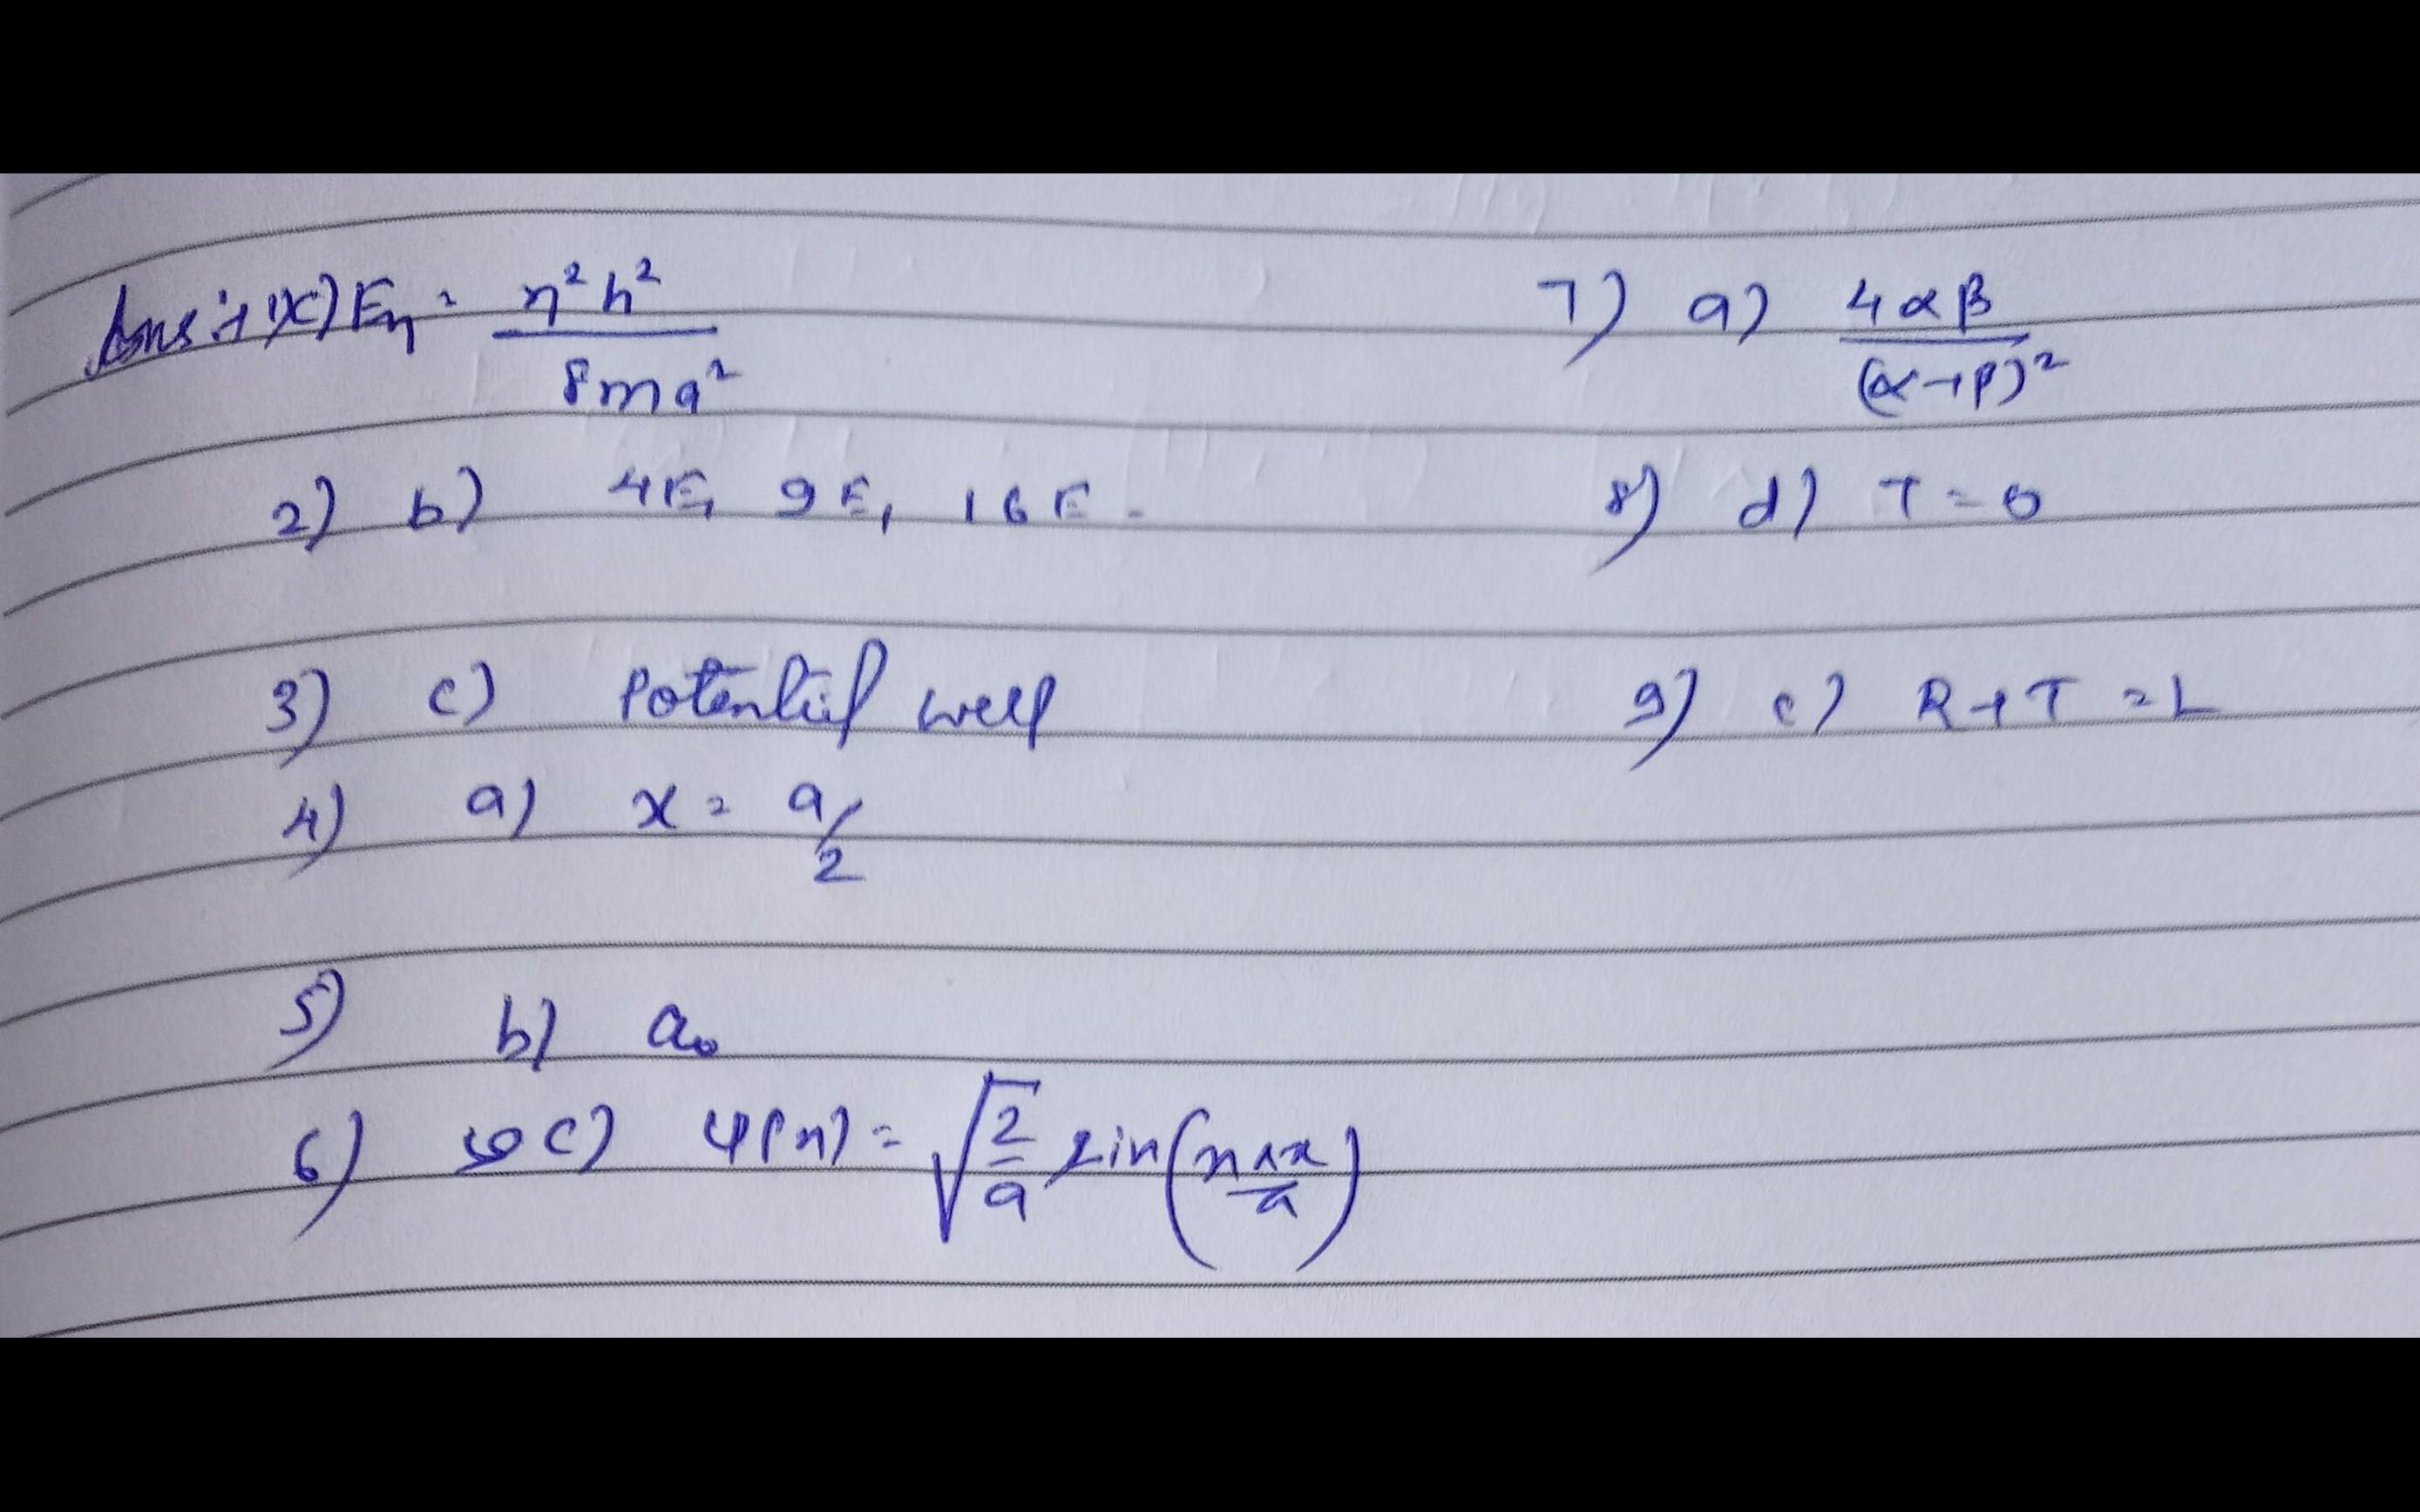 Ans :- 1) c) En = n²h² / 8ma²
2) b) 4E, 9E, 16E.
3) c) Potential well
4) a) x = a/2
5) b) a₀
6) c) ψ(x) = √(2/a) sin(nπx/a)
7) a) 4αβ / (α+β)²
8) d) T = 0
9) c) R+T = 1